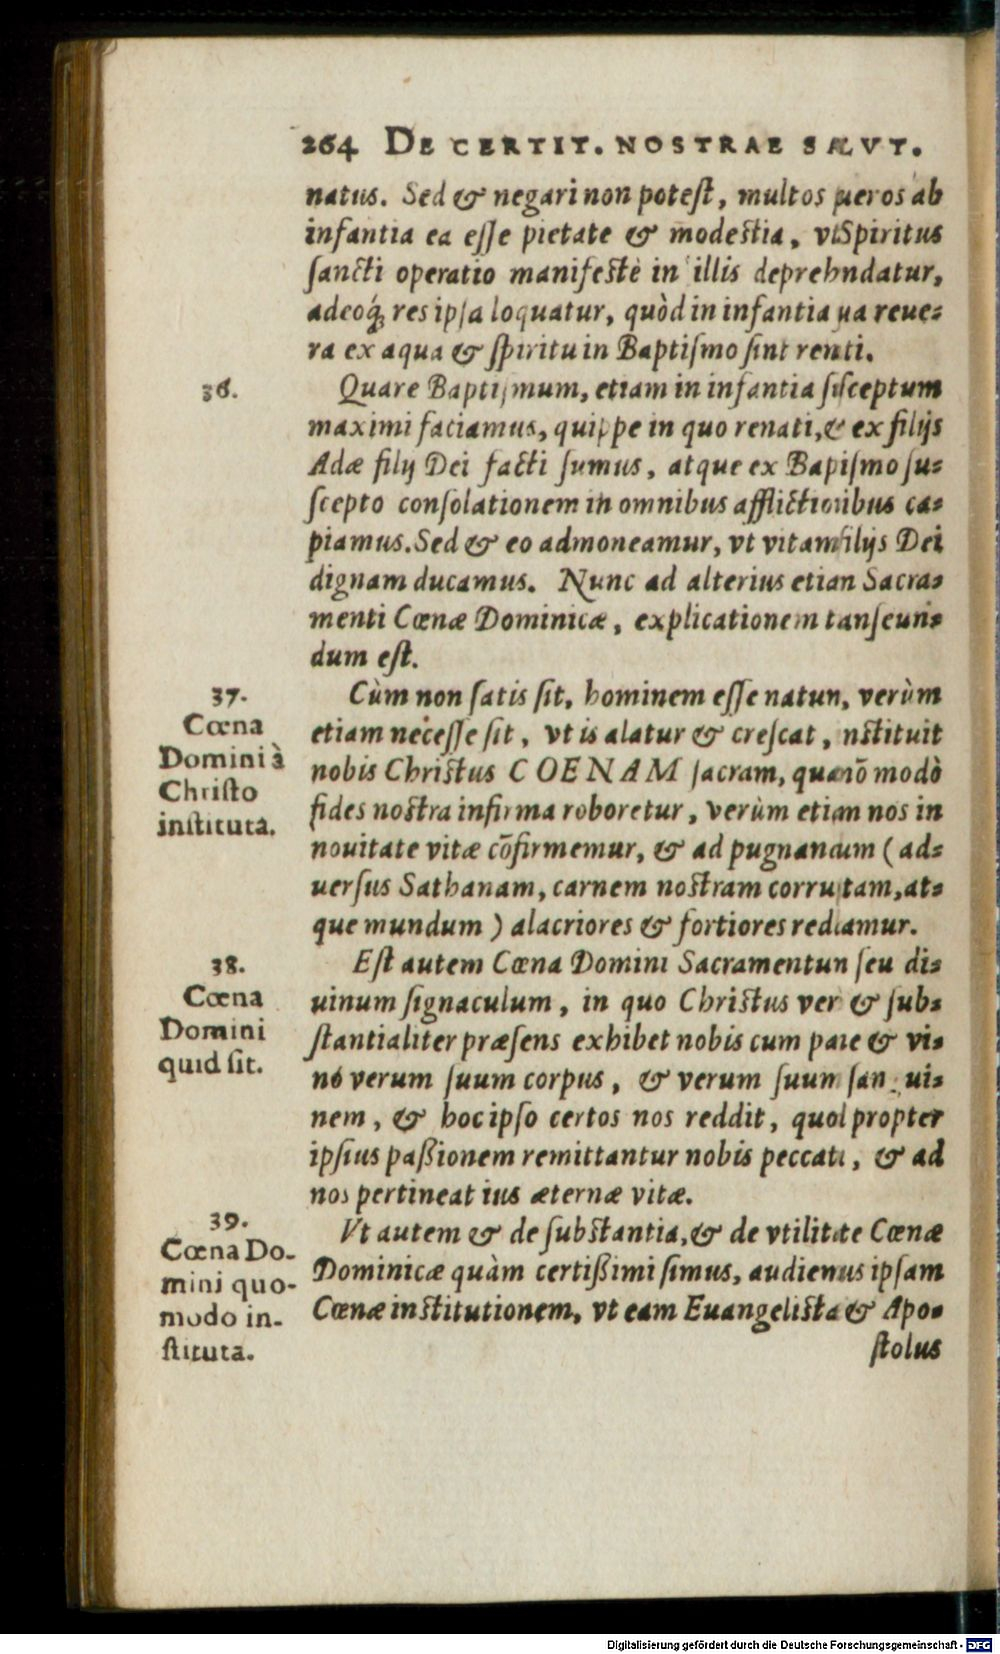 264 DE CERTIT. NOSTRAE SALVT.
natus. Sed & negari non potest, multos pueros ab
infantia ea esse pietate & modestia, vt Spiritus
sancti operatio manifestè in illis deprehndatur,
adeoq́; res ipsa loquatur, quòd in infantia sua reue-
ra ex aqua & spiritu in Baptismo sint renati.
36.
Quare Baptismum, etiam in infantia susceptum
maximi faciamus, quippe in quo renati, & ex filijs
Adæ filij Dei facti sumus, atque ex Baptismo su-
scepto consolationem in omnibus afflictionibus ca-
piamus. Sed & eo admoneamur, vt vitam filijs Dei
dignam ducamus. Nunc ad alterius etiam Sacra-
menti Cœnæ Dominicæ, explicationem transeun-
dum est.
37.
Cœna
Domini à
Christo
instituta.
Cùm non satis sit, hominem esse natum, verùm
etiam necesse sit, vt is alatur & crescat, instituit
nobis Christus COENAM sacram, qua nō modò
fides nostra infirma roboretur, verùm etiam nos in
nouitate vitæ cōfirmemur, & ad pugnandum (ad-
uersus Sathanam, carnem nostram corruptam, at-
que mundum) alacriores & fortiores reddamur.
38.
Cœna
Domini
quid sit.
Est autem Cœna Domini Sacramentum seu di-
uinum signaculum, in quo Christus verè & sub-
stantialiter præsens exhibet nobis cum pane & vi-
no verum suum corpus, & verum suum sangui-
nem, & hoc ipso certos nos reddit, quod propter
ipsius paßionem remittantur nobis peccata, & ad
nos pertineat ius æternæ vitæ.
39.
Cœna Do-
mini quo-
modo in-
stituta.
Vt autem & de substantia, & de vtilitate Cœnæ
Dominicæ quàm certißimi simus, audiemus ipsam
Cœnæ institutionem, vt eam Euangelista & Apo-
stolus
Digitalisierung gefördert durch die Deutsche Forschungsgemeinschaft - DFG